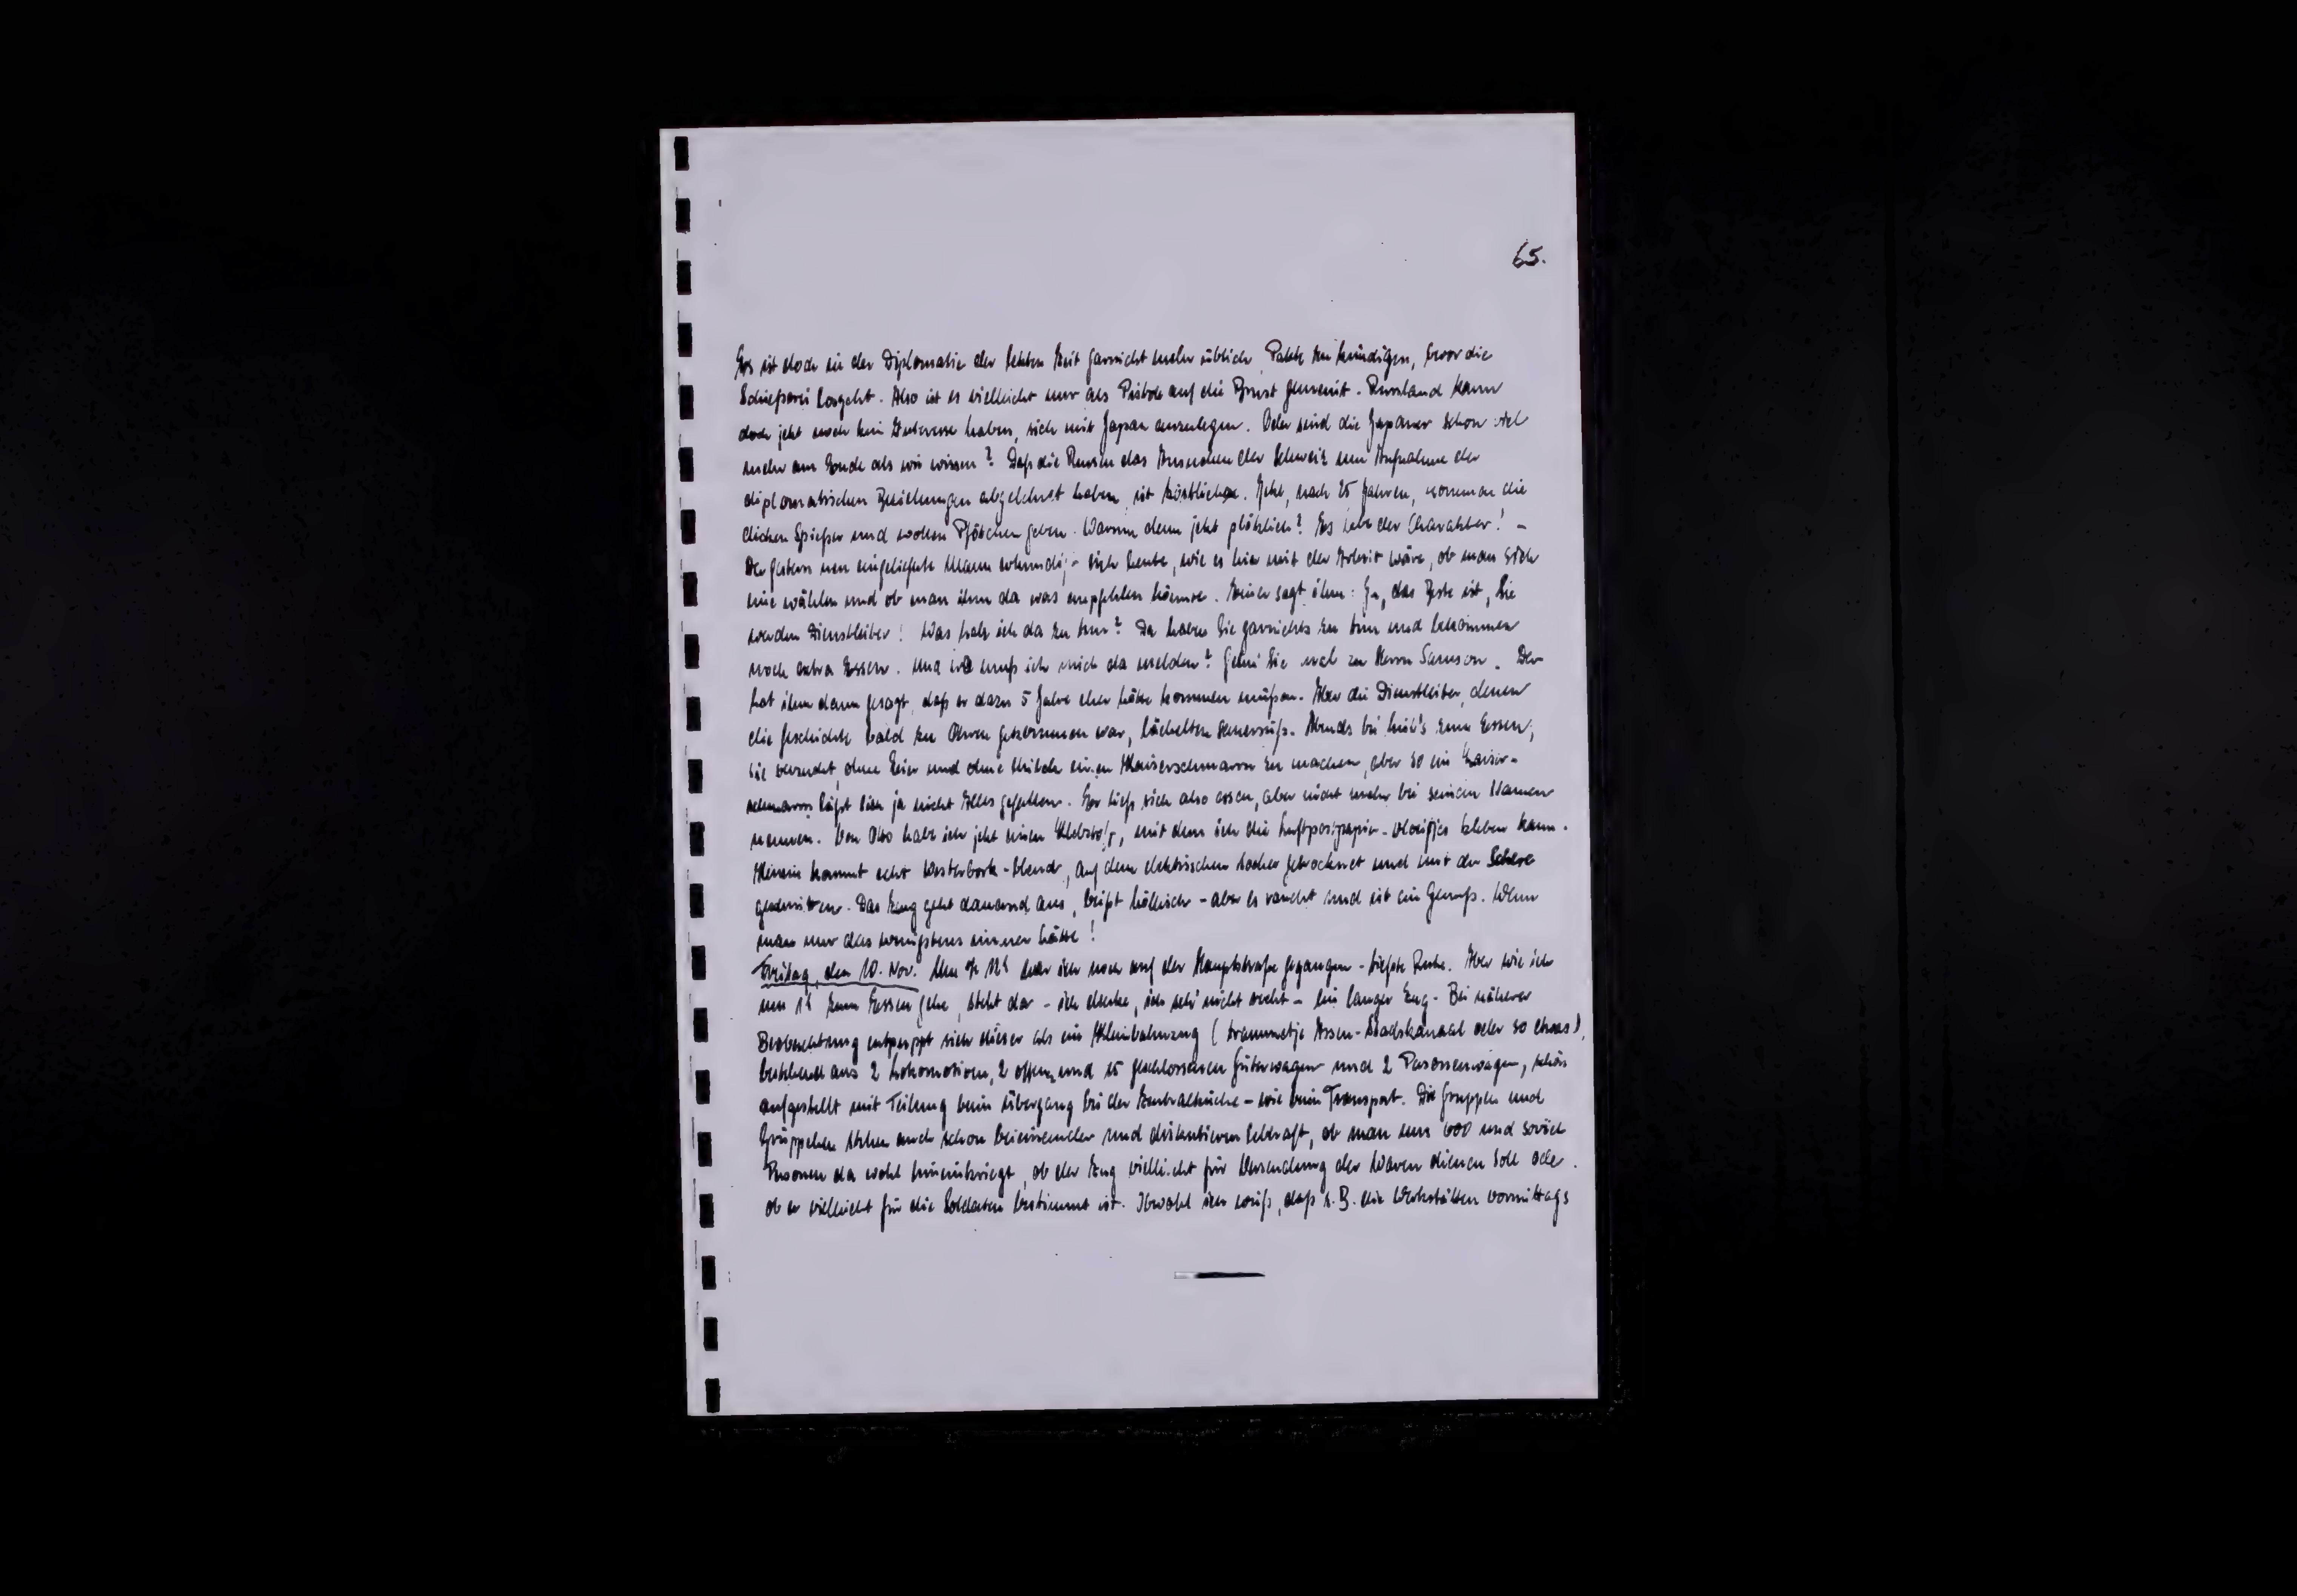 65.
Es ist doch in der Diplomatie der letzten Zeit garnicht mehr üblich, Pakte zu kündigen, bevor die
Schiesserei losgeht. Also ist es vielleicht nur als Pistole auf die Brust gemeint. Russland kann
doch jetzt noch kein Interesse haben, sich mit Japan anzulegen. Oder sind die Japaner schon viel
mehr am Ende als wir wissen? Daß die Russen das Ansuchen der Schweiz um Aufnahme der
diplomatischen Beziehungen abgelehnt haben, ist köstlich. Jetzt, nach 25 Jahren, kommen die
dicken Spießer und wollen Pfötchen geben. Warum denn jetzt plötzlich? Es lebe der Charakter! -
Der gestern neu eingelieferte Mann erkundigt sich heute, wie es hier mit der Arbeit wäre, ob man sich
eine wählen und ob man ihm da was empfehlen könnte. Einer sagt ihm: Ja, das Beste ist, Sie
werden Dienstleiter! Was hab ich da zu tun? Da haben Sie garnichts zu tun und bekommen
noch extra Essen. Und wo muß ich mich da melden? Gehn Sie mal zu Herrn Samson. Der
hat ihm dann gesagt, daß er dazu 5 Jahre eher hätte kommen müßen. Aber die Dienstleiter, denen
die Geschichte bald zu Ohren gekommen war, lächelten sauersüß. Abends bei zum Essen;
sie versucht, ohne Eier und ohne Milch einen Kaiserschmarrn zu machen, aber so ein Kaiser-
schmarrn läßt sich ja nicht Alles gefallen. Er ließ sich also essen, aber nicht mehr bei seinem Namen
nennen. Von Otto habe ich jetzt einen Klebstoff, mit dem ich die Luftpostpapier- kleben kann.
Hinein kommt echt Westerbork-Blend, auf dem elektrischen Kocher getrocknet und mit der Schere
geschnitten. Das Zeug geht dauernd aus, beißt höllisch - aber es raucht und ist ein Genuß. Wenn
man nur das wenigstens immer hätte!
Freitag, den 10. Nov. Um war ich noch auf der Hauptstraße gegangen - tiefste Ruhe. Aber wie ich
um zum Essen gehe, steht da - ich denke, ich seh' nicht recht - ein langer Zug. Bei näherer
Beobachtung entpuppt sich dieser als ein Kleinbahnzug (trammetje Assen-Stadskanaal oder so etwas),
bestehend aus 2 Lokomotiven, 2 offenen und 15 geschlossenen Güterwagen und 2 Personenwagen, schön
aufgestellt mit Teilung beim Übergang bei der Zentralküche - wie beim Transport. Die Gruppen und
Grüppchen stehen auch schon beieinander und diskutieren lebhaft, ob man uns 600 und soviel
Personen da wohl hineinkriegt, ob der Zug vielleicht für Versendung der Waren dienen soll oder
ob er vielleicht für die Soldaten bestimmt ist. Obwohl ich weiß, daß z.B. die Werkstätten vormittags